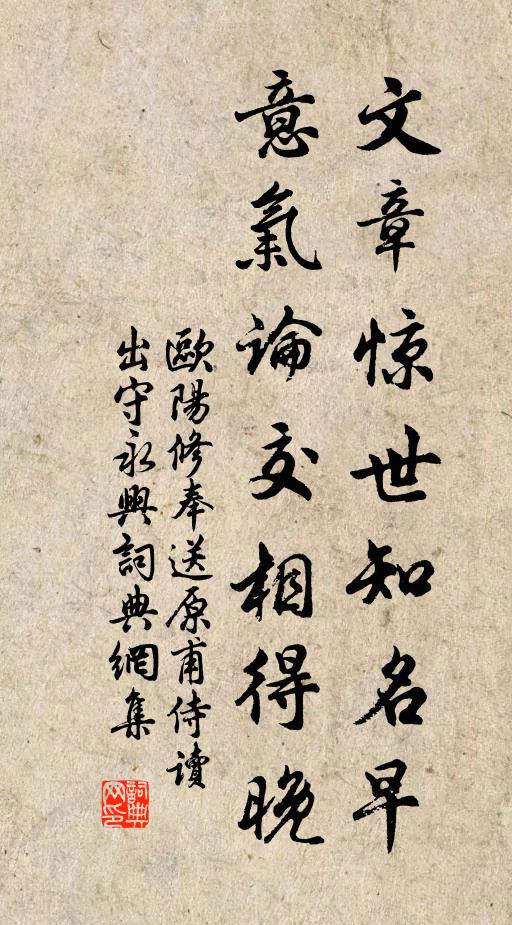 文章惊世知名早
意氣論交相得晚
歐陽修奉送原甫侍讀
出守永興詞典網集
詞典
网印